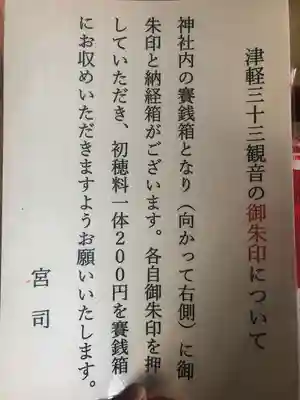 津軽三十三観音の御朱印について
神社内の賽銭箱となり（向かって右側）に御
朱印と納経箱がございます。各自御朱印を押
していただき、初穂料一体２００円を賽銭箱
にお収めいただきますようお願いいたします。
宮司